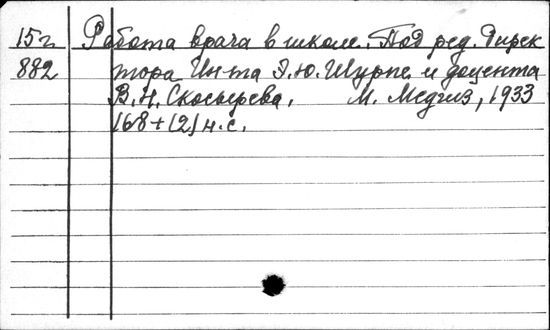 15г Работа врача в школе. Под ред. Дирек
882 тора Ин-та Э.Ю. Шурпе и доцента
В.Н. Скосырева. М. Медгиз, 1933
168+(2) н.с.